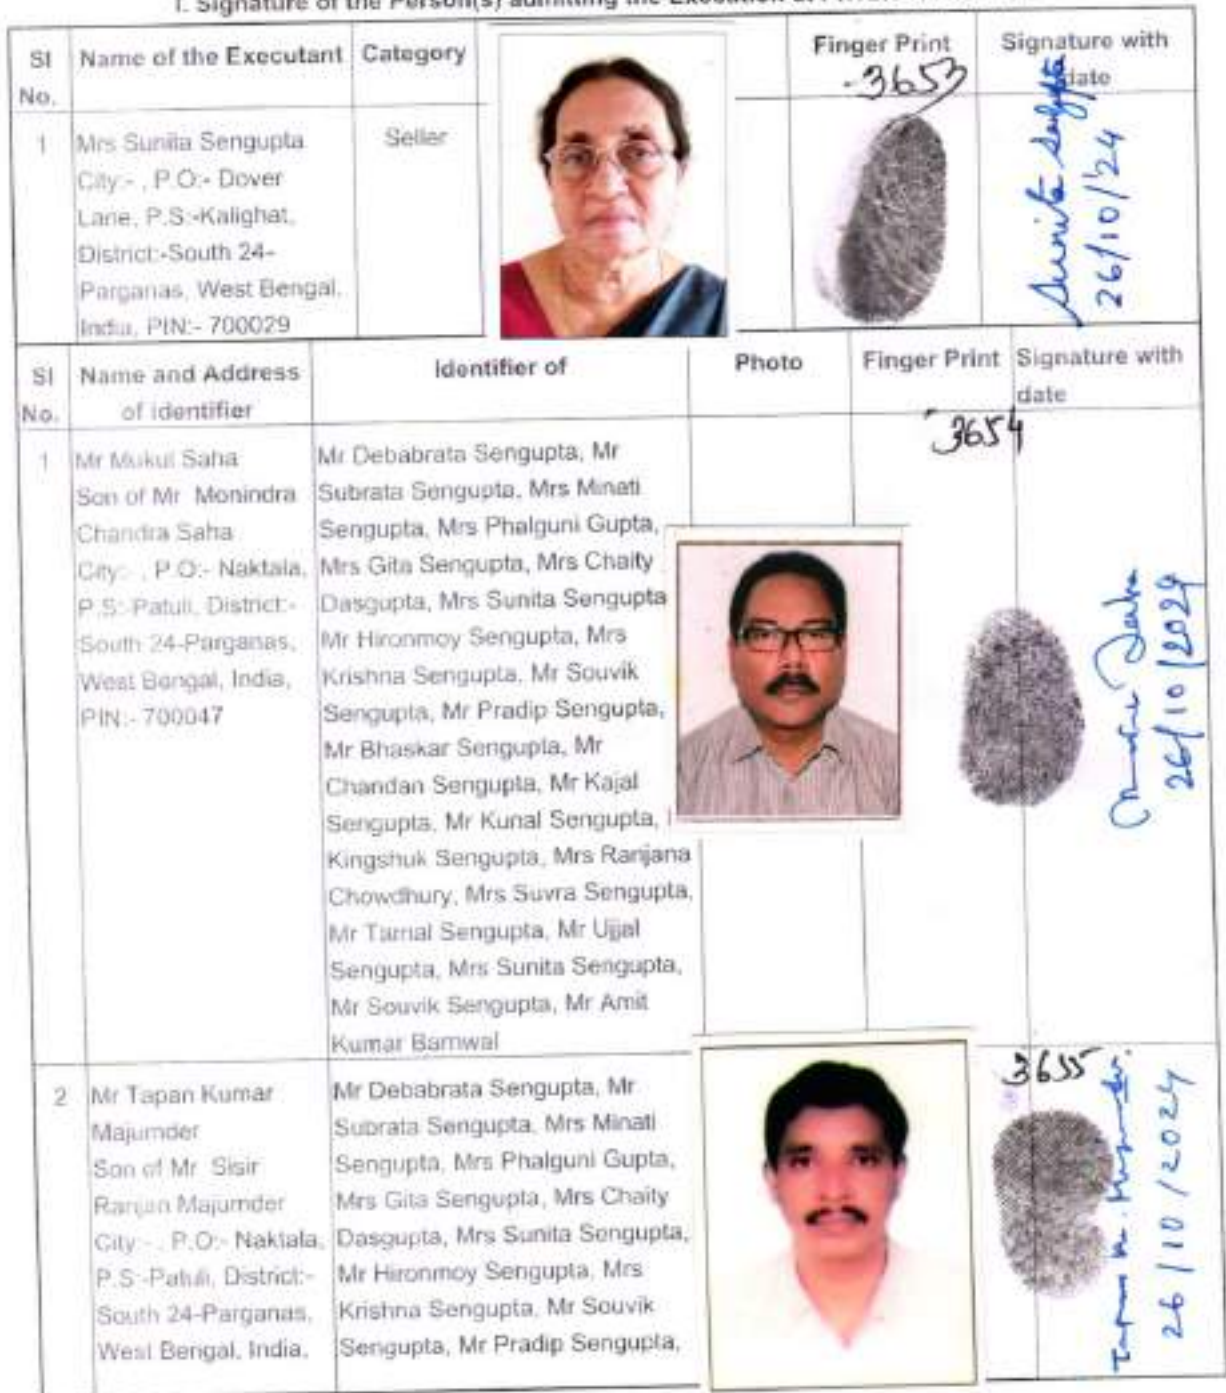 I. Signature of the Person(s) admitting the Execution at
Sl No.
Name of the Executant
Category
Finger Print
Signature with date
3653
1
Mrs Sunita Sengupta
City:- , P.O:- Dover
Lane, P.S:-Kalighat,
District:-South 24-
Parganas, West Bengal,
India, PIN:- 700029
Seller
Sunita Sengupta
26/10/24
Sl No.
Name and Address
of identifier
Identifier of
Photo
Finger Print
Signature with
date
3654
1
Mr Mukul Saha
Son of Mr Monindra
Chandra Saha
City:- , P.O:- Naktala,
P.S:-Patuli, District:-
South 24-Parganas,
West Bengal, India,
PIN:- 700047
Mr Debabrata Sengupta, Mr
Subrata Sengupta, Mrs Minati
Sengupta, Mrs Phalguni Gupta,
Mrs Gita Sengupta, Mrs Chaity
Dasgupta, Mrs Sunita Sengupta
Mr Hironmoy Sengupta, Mrs
Krishna Sengupta, Mr Souvik
Sengupta, Mr Pradip Sengupta,
Mr Bhaskar Sengupta, Mr
Chandan Sengupta, Mr Kajal
Sengupta, Mr Kunal Sengupta,
Kingshuk Sengupta, Mrs Ranjana
Chowdhury, Mrs Suvra Sengupta,
Mr Tamal Sengupta, Mr Ujjal
Sengupta, Mrs Sunita Sengupta,
Mr Souvik Sengupta, Mr Amit
Kumar Barnwal
26/10/2024
3655
2
Mr Tapan Kumar
Majumder
Son of Mr Sisir
Ranjan Majumder
City:- , P.O:- Naktala,
P.S:-Patuli, District:-
South 24-Parganas,
West Bengal, India,
Mr Debabrata Sengupta, Mr
Subrata Sengupta, Mrs Minati
Sengupta, Mrs Phalguni Gupta,
Mrs Gita Sengupta, Mrs Chaity
Dasgupta, Mrs Sunita Sengupta,
Mr Hironmoy Sengupta, Mrs
Krishna Sengupta, Mr Souvik
Sengupta, Mr Pradip Sengupta,
26/10/2024